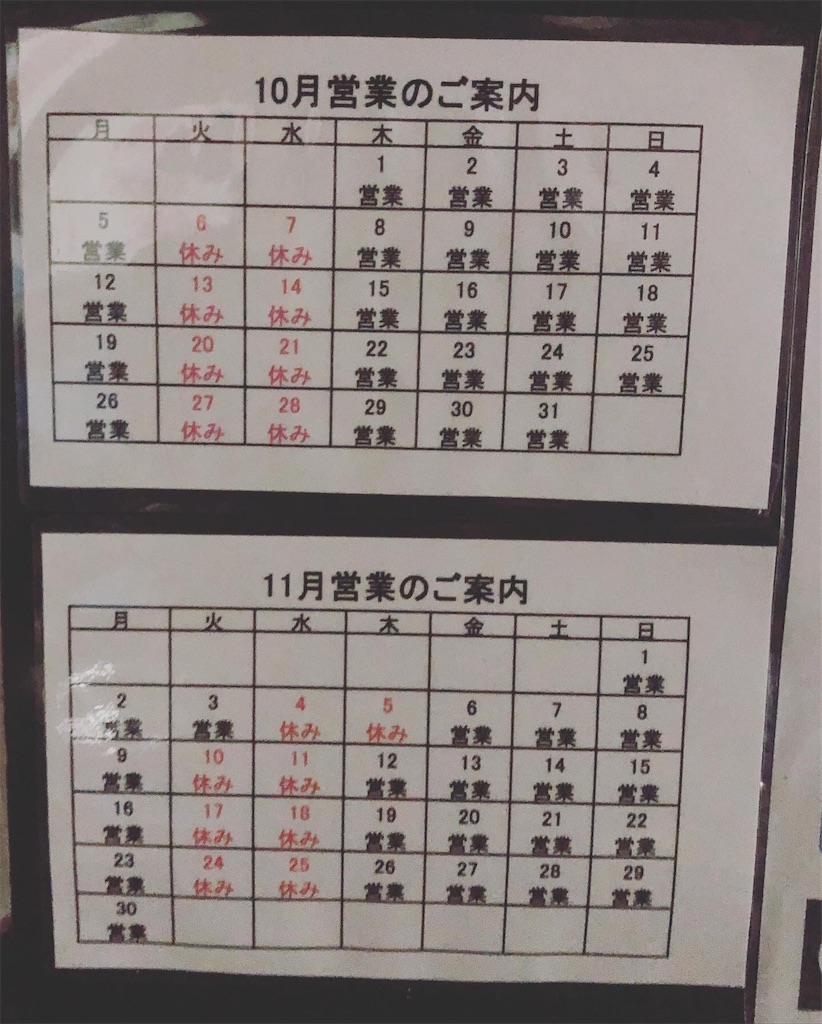 10月営業のご案内
月 火 水 木 金 土 日
1 2 3 4
営業 営業 営業 営業
5 6 7 8 9 10 11
営業 休み 休み 営業 営業 営業 営業
12 13 14 15 16 17 18
営業 休み 休み 営業 営業 営業 営業
19 20 21 22 23 24 25
営業 休み 休み 営業 営業 営業 営業
26 27 28 29 30 31
営業 休み 休み 営業 営業 営業
11月営業のご案内
月 火 水 木 金 土 日
1
営業
2 3 4 5 6 7 8
営業 営業 休み 休み 営業 営業 営業
9 10 11 12 13 14 15
営業 休み 休み 営業 営業 営業 営業
16 17 18 19 20 21 22
営業 休み 休み 営業 営業 営業 営業
23 24 25 26 27 28 29
営業 休み 休み 営業 営業 営業 営業
30
営業